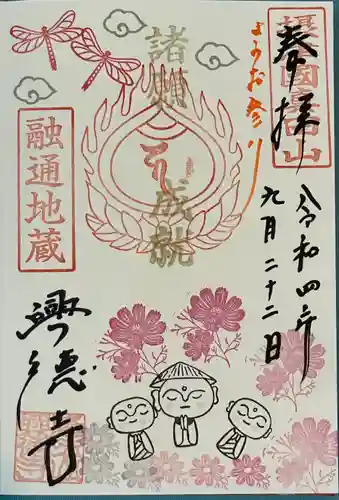 奉拝
令和四年
九月二十二日
ようお参り
諸願成就
融通地蔵
興徳寺